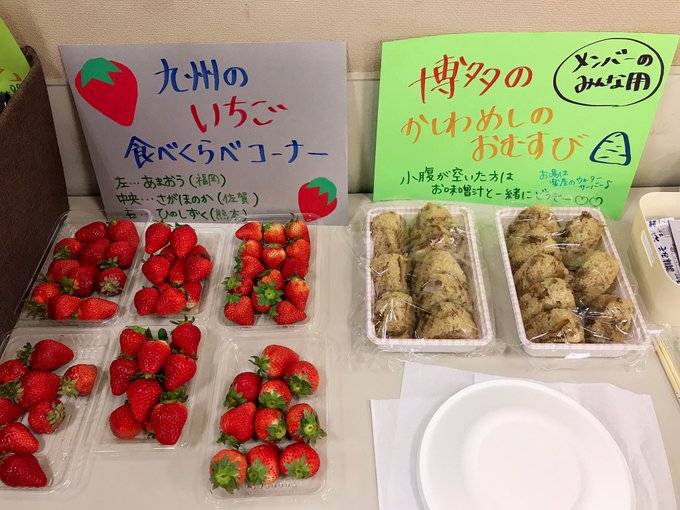 九州の
いちご
食べくらべコーナー
左…あまおう(福岡)
中央…さがほのか(佐賀)
右…ひのしずく(熊本)
博多の
かしわめしの
おむすび
メンバーの
みんな用
小腹が空いた方は
お味噌汁と一緒にどうぞ
お湯は